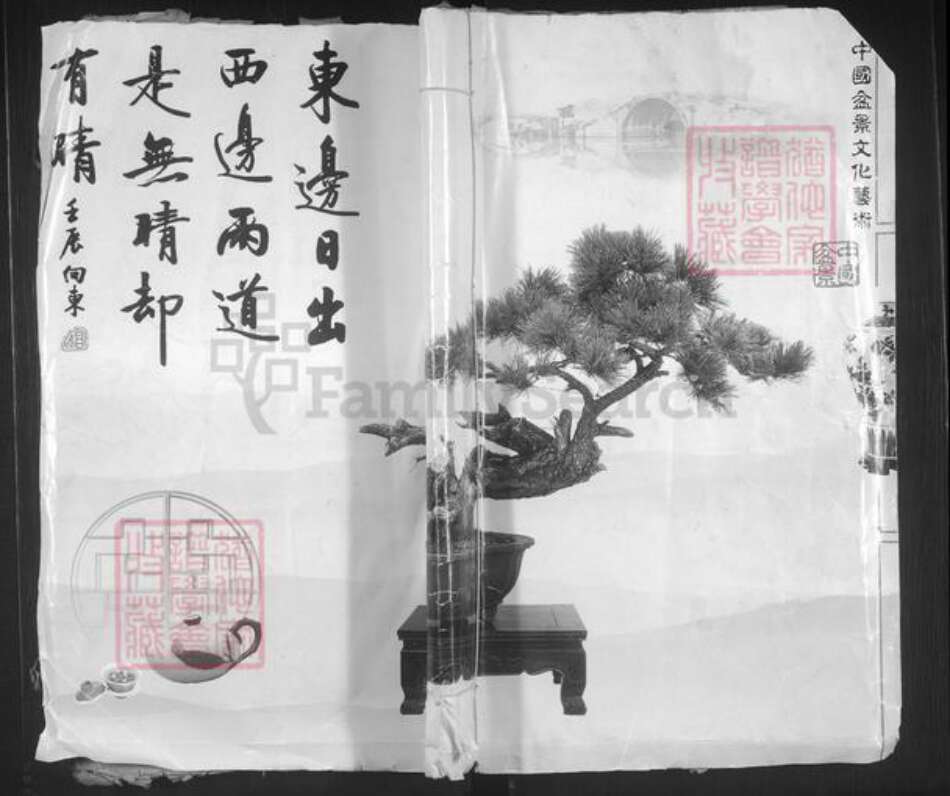 東邊日出
西邊雨道
是無晴却
有晴
壬辰向東
中國盆景文化藝術
中國
盆景
猶他家
譜學會
收藏
猶他家
譜學會
收藏
FamilySearch